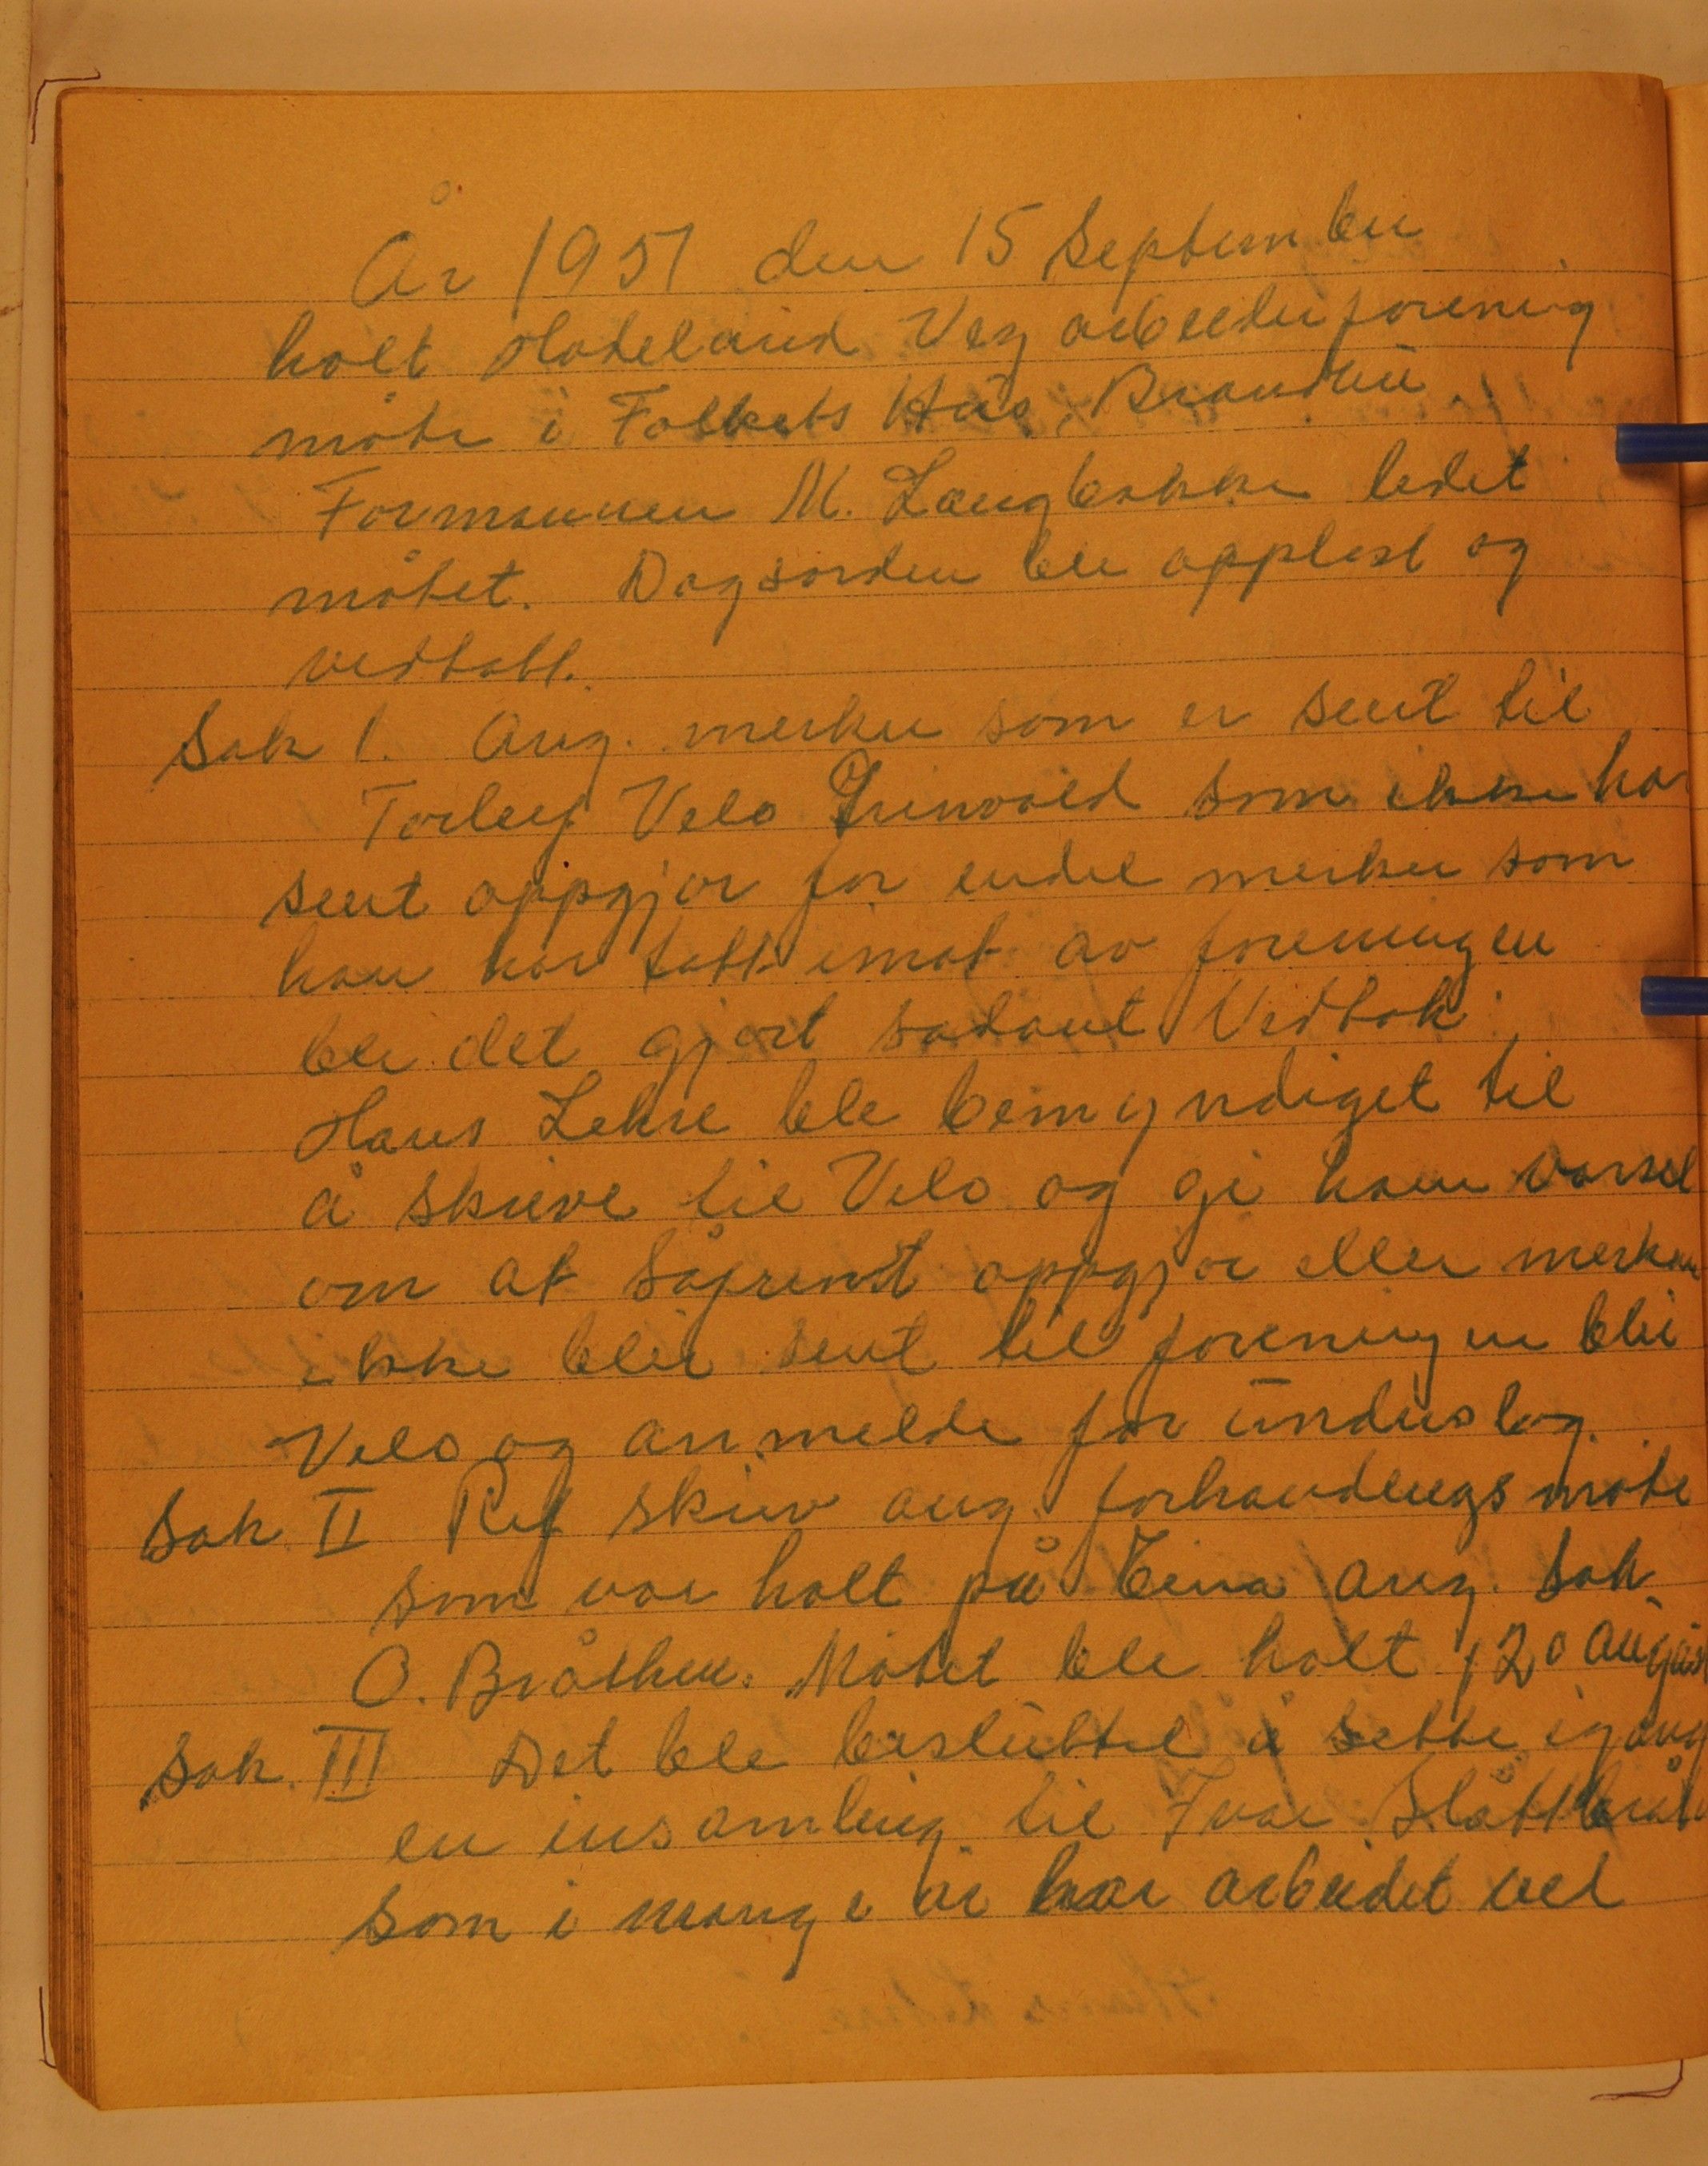 År 1951 den 15 September
holt Hadeland Vegarbeiderforening
møte i Folkets Hus, Brandbu.
Formannen M. Langbakke ledet
møtet. Dagsorden ble opplest og
vedtatt.
Sak 1. Ang. merker som er sent til
Torleif Velo Grinvold som ikke har
sent oppgjør for endel merker som
han har tatt imot av foreningen
ble det gjort sådant Vedtak
Hans Lehne ble bemyndiget til
å skrive til Velo og gi ham varsel
om at såfremt oppgjør eller merkene
ikke blir sent til foreningen blir
Velo og anmeldt for underslag.
Sak II Ref skriv ang. forhandlingsmøte
som var holt på Eina ang. sak
O. Bråthen. Møtet ble holt 20 august
Sak III Det ble besluttet å sette igang
en insamling til Ivar Slåttbråt
som i mange år har arbeidet ved